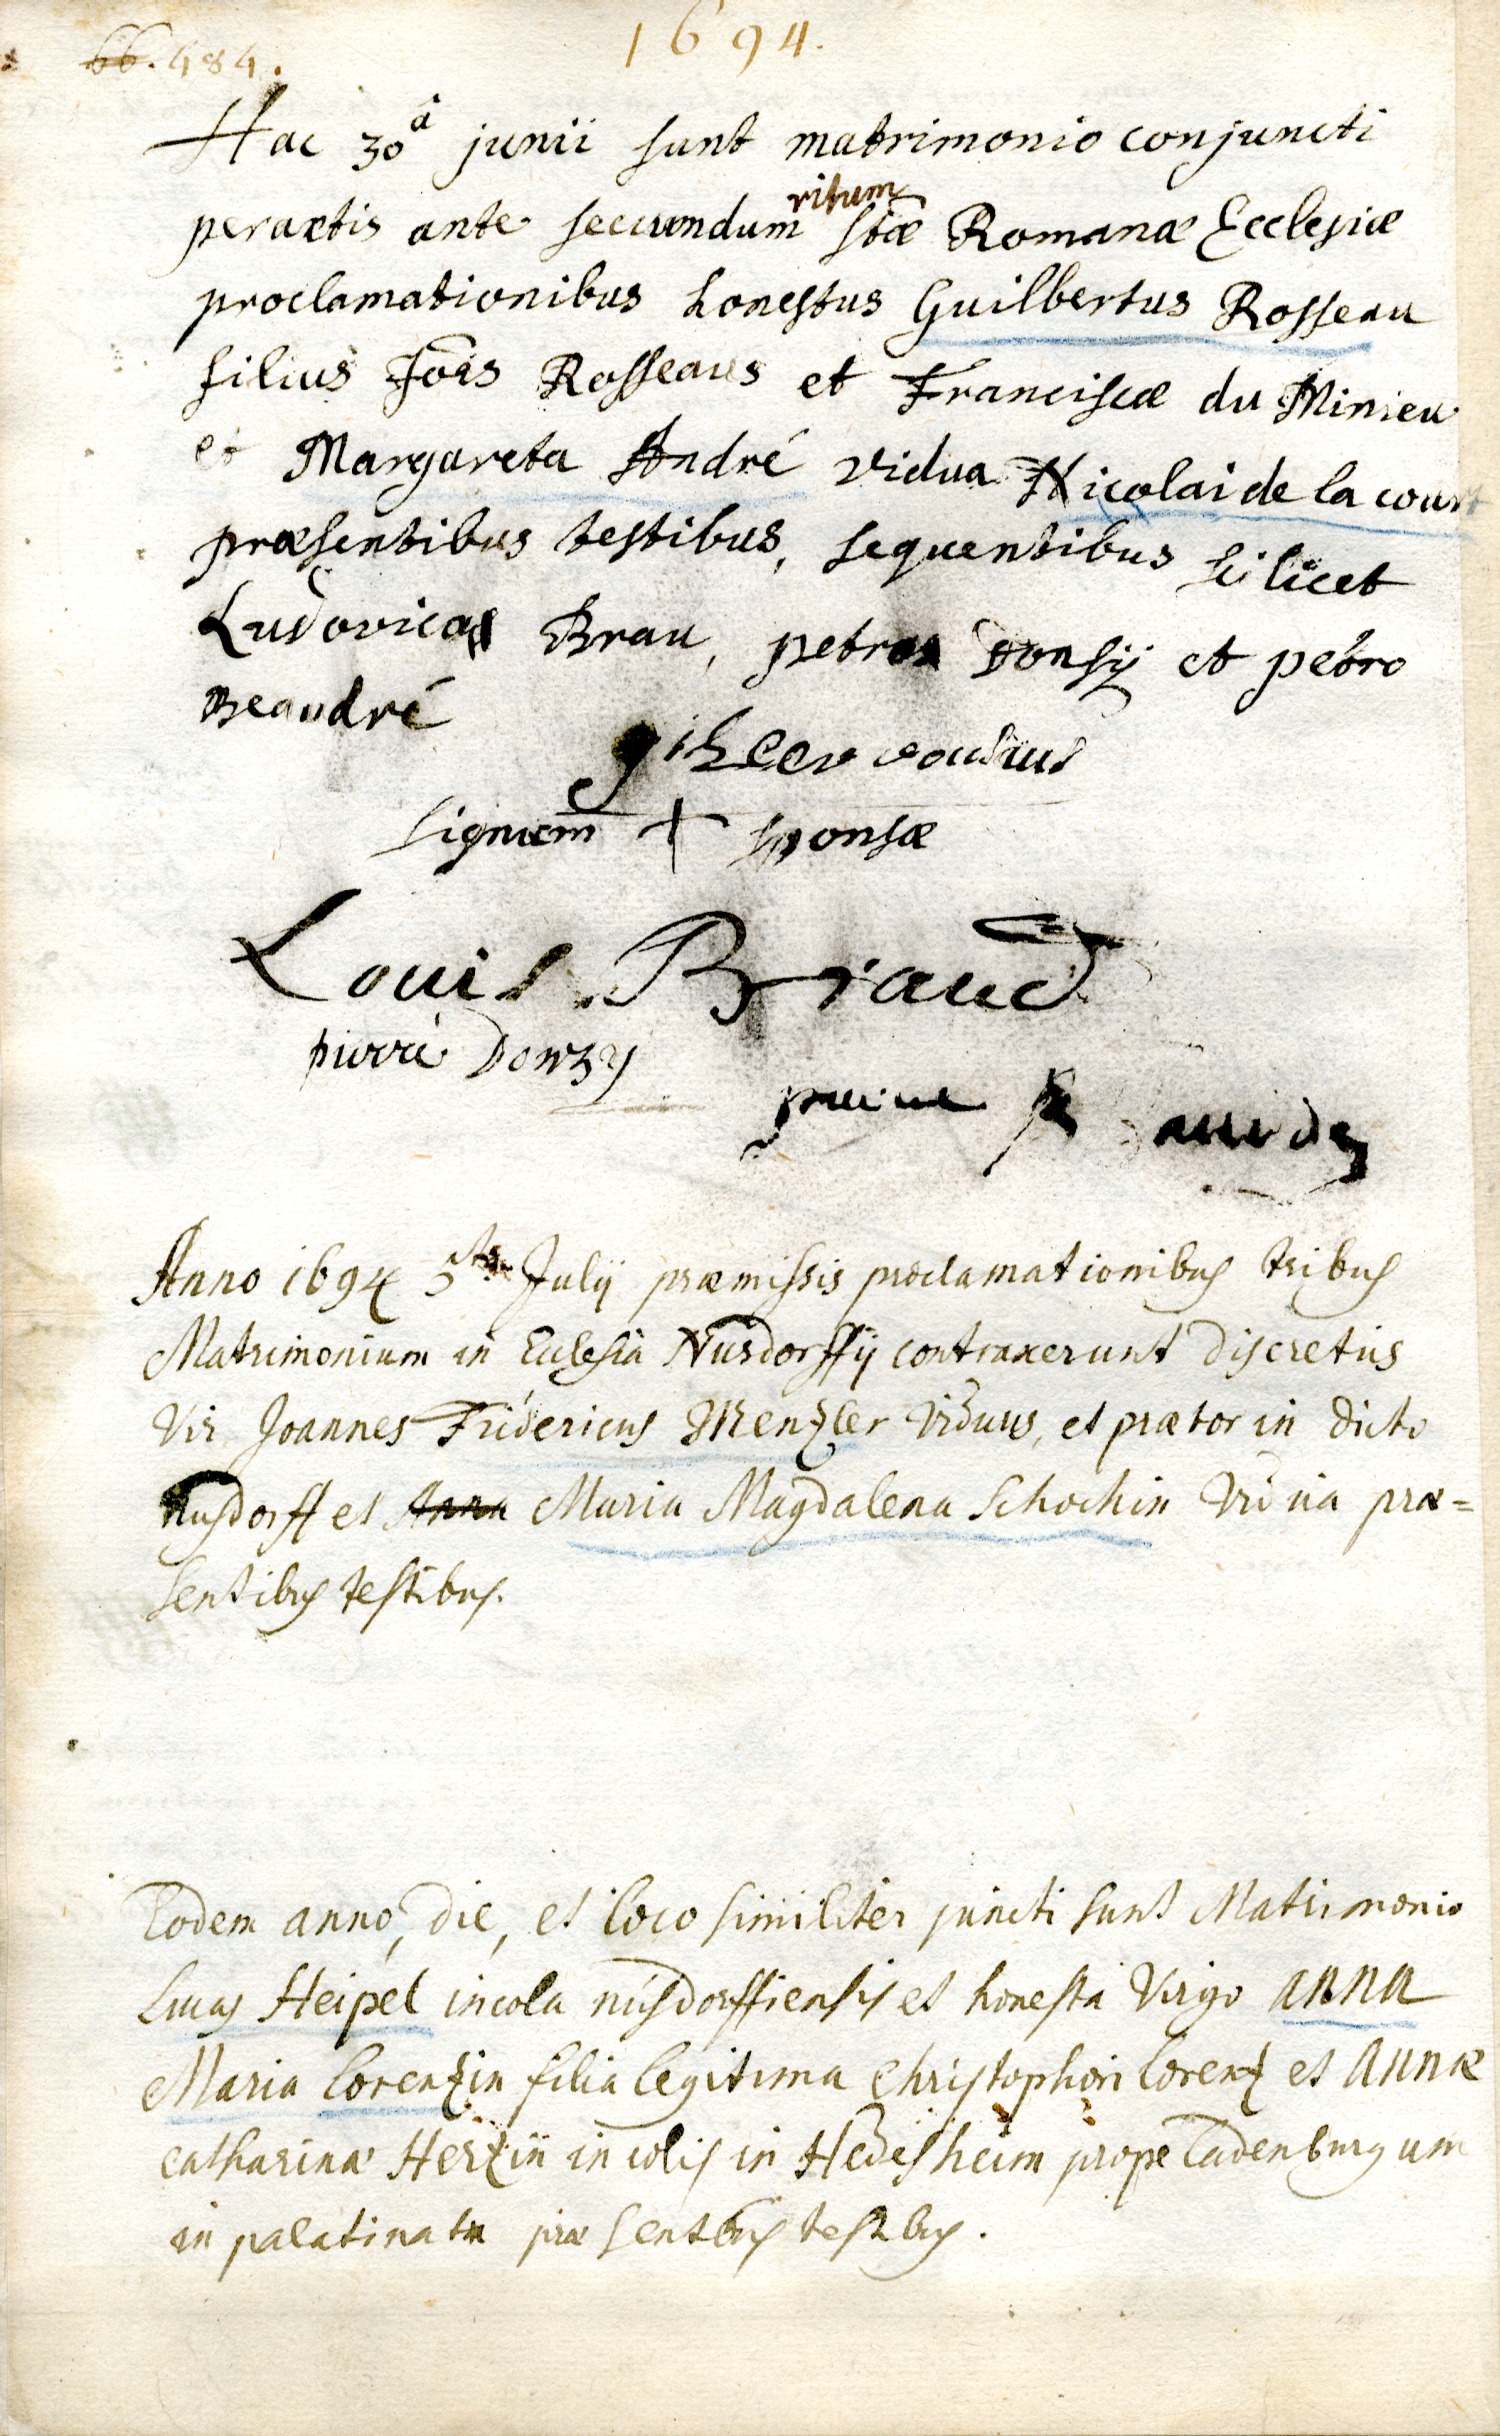 1694.
66. 484.
Hac 30â junii sunt matrimonio conjuncti
peractis ante secundum ritum stae Romanae Ecclesiae
proclamationibus honestus Guilbertus Rosseau
filius Jois Rosseaus et Franciscae du Minieu
et Margareta André vidua Nicolai de la court
praesentibus testibus, sequentibus scilicet
Ludovico Brau, petro Donsÿ et petro
Beaudré
signum + sponsae
Louis Briaud
pierre Donzy
Anno 1694 5ta Julÿ praemissis proclamationibus tribus
Matrimonium in Eclesia Nusdorffÿ contraxerunt discretus
Vir Joannes Fridericus Menzler viduus, et praetor in dicto
Nusdorff et Anna Maria Magdalena Schochin vidua prae=
sentibus testibus.
Eodem anno, die, et loco similiter juncti sunt Matrimonio
Lucas Heipel incola nusdorffiensis et honesta Virgo Anna
Maria Lorentzin filia legitima Christophori Lorentz et Annae
catharinae Hertzin incolis in Hedesheim prope Ladenburgum
in palatinatu praesentibus testibus.